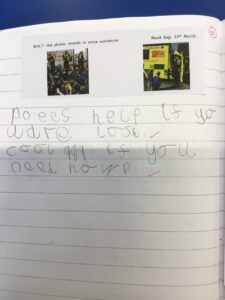 WALT: Use phonic sounds to write sentences
Week beg: 23rd March.
Poees help if yo
uare lost.
cool 999 if you
need help